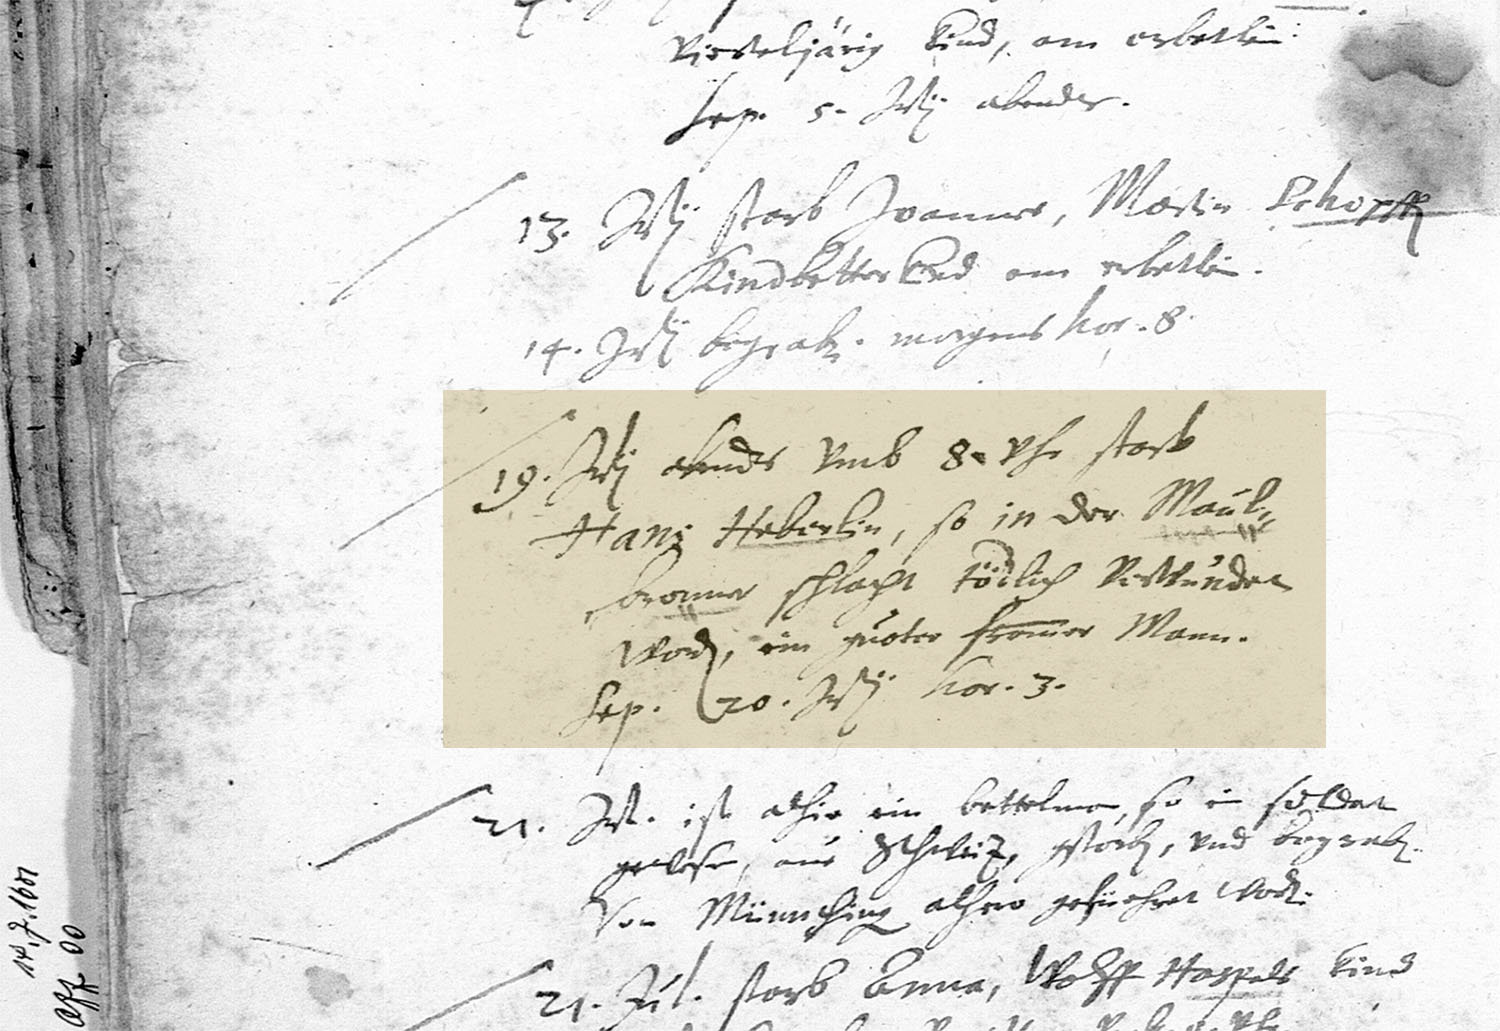 vierteljärig kind, am erbetlin.
Sep. 5. Julij abends.
13. Julij starb Joannes, Martin Schopffen
Kindbetter Kind am erbetlin.
14. Julij begrab. morgens hor. 8.
19. Julij abends vmb 8. vhr starb
Hans Heberlin, so in der Maul,,
bronner schlacht tödlich verwundet
word, ein guoter frommer Mann.
Sep. 20. Julij hor. 3.
21. Jul. ist alhie ein bettelman, so ein soldat
gewesen, aus Schweitz, gstorb, vnd begrab.
Von Münching alhero gefüehret word.
21. Jul. starb Anna, Wolff Happels kind